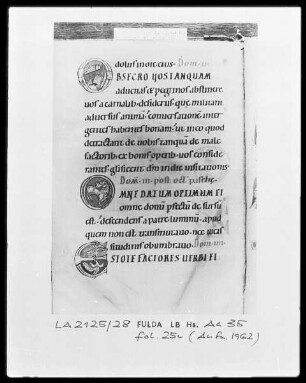 dolus in ore eius. Dom. ii
BSECRO VOS TANQUAM
aduenas & peregrinos abstinere
uos a carnalib. desideriis que militant
aduersus animā. conuersationē inter
gentes habentes bonam. ut in eo quod
detractant de uobis tanquā de male
factorib. ex bonis operib. uos conside
rantes glificent dm in die uisitationis.
Dom. iii. post oct. pasche.
MNE DATUM OPTIMUM ET
omne donū pfectū de sursū
est. descendens a patre luminū. apud
quem non est transmutatio. nec uicis
situdinis obumbratio. Dom. iiii.
STOTE FACTORES UERBI ET
LA 2125/28 FULDA LB Hs. Aa 35
fol. 25v (Au. Fu. 1962)